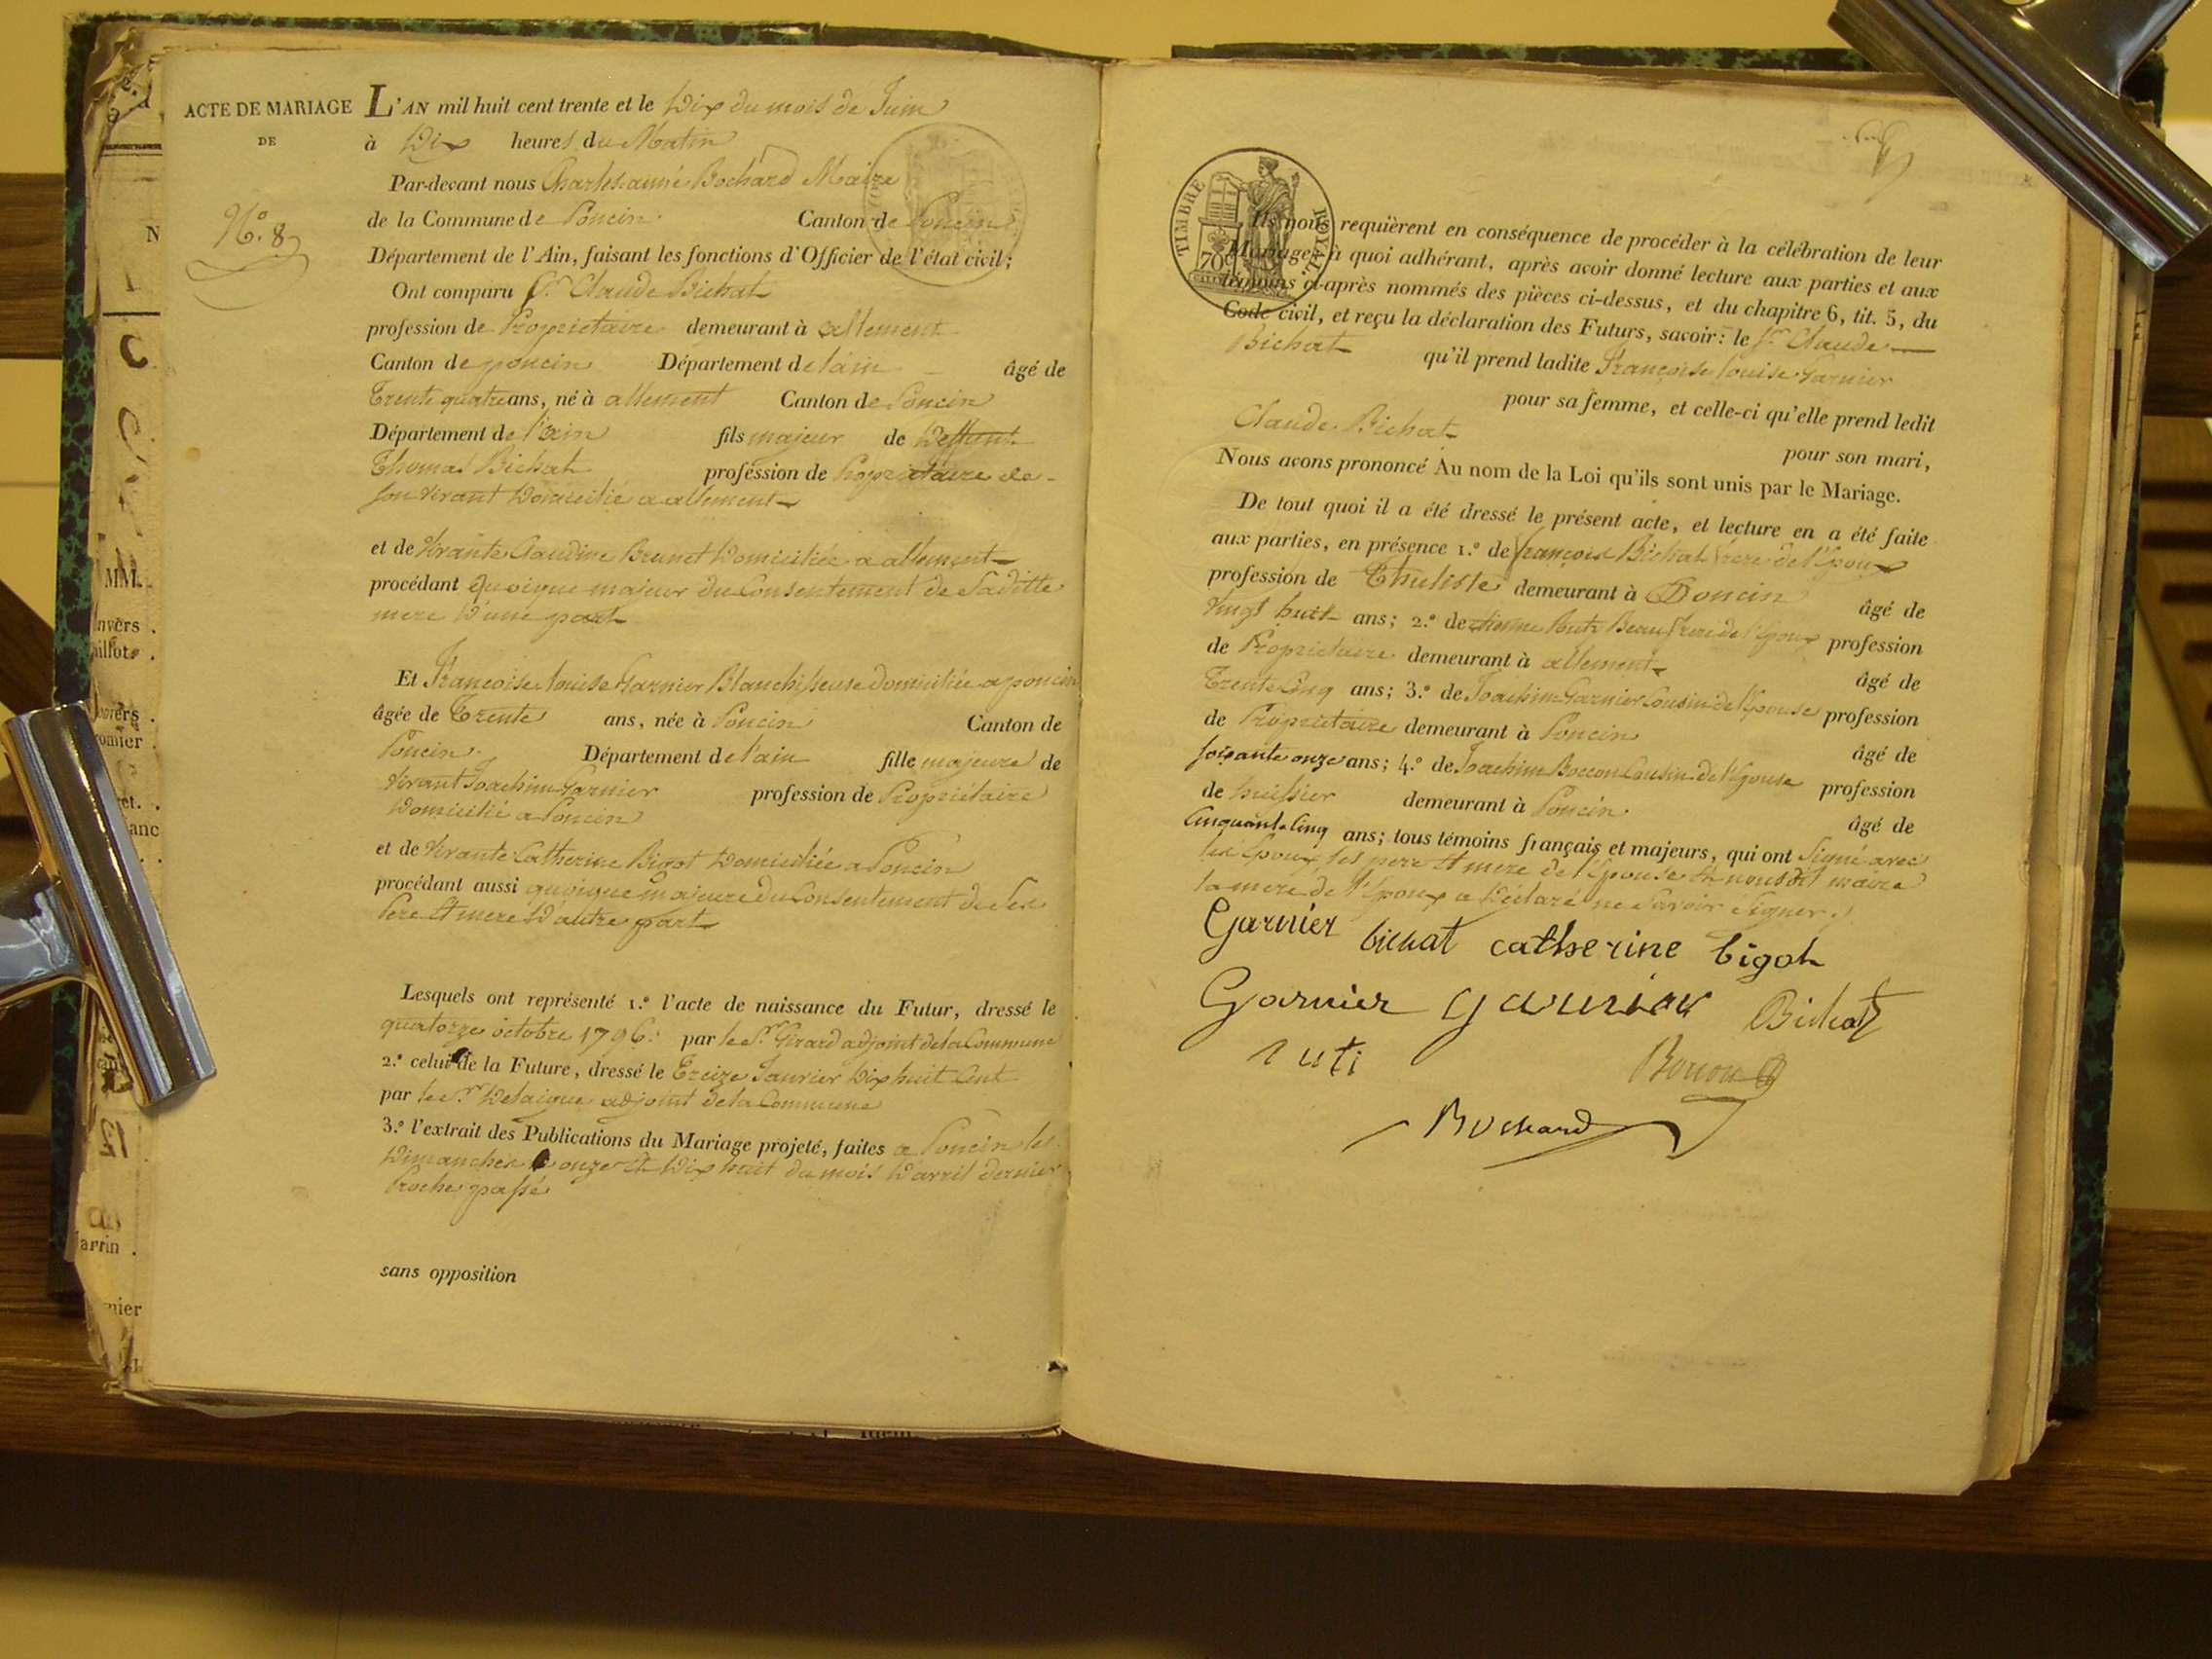 ACTE DE MARIAGE
DE
N.º 8
L'AN mil huit cent trente et le Dix du mois de Juin
à Dix heures du Matin
Par-devant nous Charles aimé Bochard Maire
de la Commune de Poncin Canton de Poncin
Département de l'Ain, faisant les fonctions d'Officier de l'état civil;
Ont comparu Sr. Claude Bichat
profession de Propriétaire demeurant à allement
Canton de poncin Département de l'ain âgé de
Trente quatre ans, né à allement Canton de Poncin
Département de l'ain fils majeur de Deffunt
Thomas Bichat profession de Propriétaire de
son vivant Domicilié a allement
et de vivante Claudine Brunet Domiciliée a allement
procédant quoique majeur du Consentement de Saditte
mere D'une part
Et Françoise Louise Garnier Blanchisseuse domiciliée a poncin
âgée de Trente ans, née à Poncin Canton de
Poncin Département de l'ain fille majeure de
vivant Joachim Garnier profession de Propriétaire
Domicilié a Poncin
et de vivante Catherine Bigot Domiciliée a Poncin
procédant aussi quoique majeure du Consentement de Ses
Pere et mere D'autre part
Lesquels ont représenté 1.º l'acte de naissance du Futur, dressé le
quatorze octobre 1796: par le Sr. Girard adjoint de la Commune
2.º celui de la Future, dressé le Treize Janvier Dix huit Cent
par le Sr. Delaigue adjoint de la Commune
3.º l'extrait des Publications du Mariage projeté, faites a Poncin les
Dimanches onze et Dix huit du mois D'avril dernier
Proche passé
sans opposition
TIMBRE ROYAL
70
Ils nous requièrent en conséquence de procéder à la célébration de leur
Mariage, à quoi adhérant, après avoir donné lecture aux parties et aux
témoins ci-après nommés des pièces ci-dessus, et du chapitre 6, tit. 5, du
Code civil, et reçu la déclaration des Futurs, savoir: le Sr. Claude
Bichat qu'il prend ladite Françoise Louise Garnier
pour sa femme, et celle-ci qu'elle prend ledit
Claude Bichat pour son mari,
Nous avons prononcé Au nom de la Loi qu'ils sont unis par le Mariage.
De tout quoi il a été dressé le présent acte, et lecture en a été faite
aux parties, en présence 1.º de françois Bichat frere de l'Epoux
profession de Thuliste demeurant à Poncin âgé de
Vingt huit ans; 2.º de Beaufrere de l'Epoux profession
de Propriétaire demeurant à allement âgé de
Trente Cinq ans; 3.º de Joachim Garnier Cousin de l'Epouse profession
de Propriétaire demeurant à Poncin âgé de
soixante onze ans; 4.º de Joachim Bocon Cousin de l'Epouse profession
de huissier demeurant à Poncin âgé de
Cinquante Cinq ans; tous témoins français et majeurs, qui ont Signé avec
les Epoux les pere et mere de l'Epouse et nous dit maire
la mere de l'Epoux a Déclaré ne Savoir Signer./.
Garnier bichat catherine bigot
Garnier garnier Bichat
ruti Bocon
Bochard